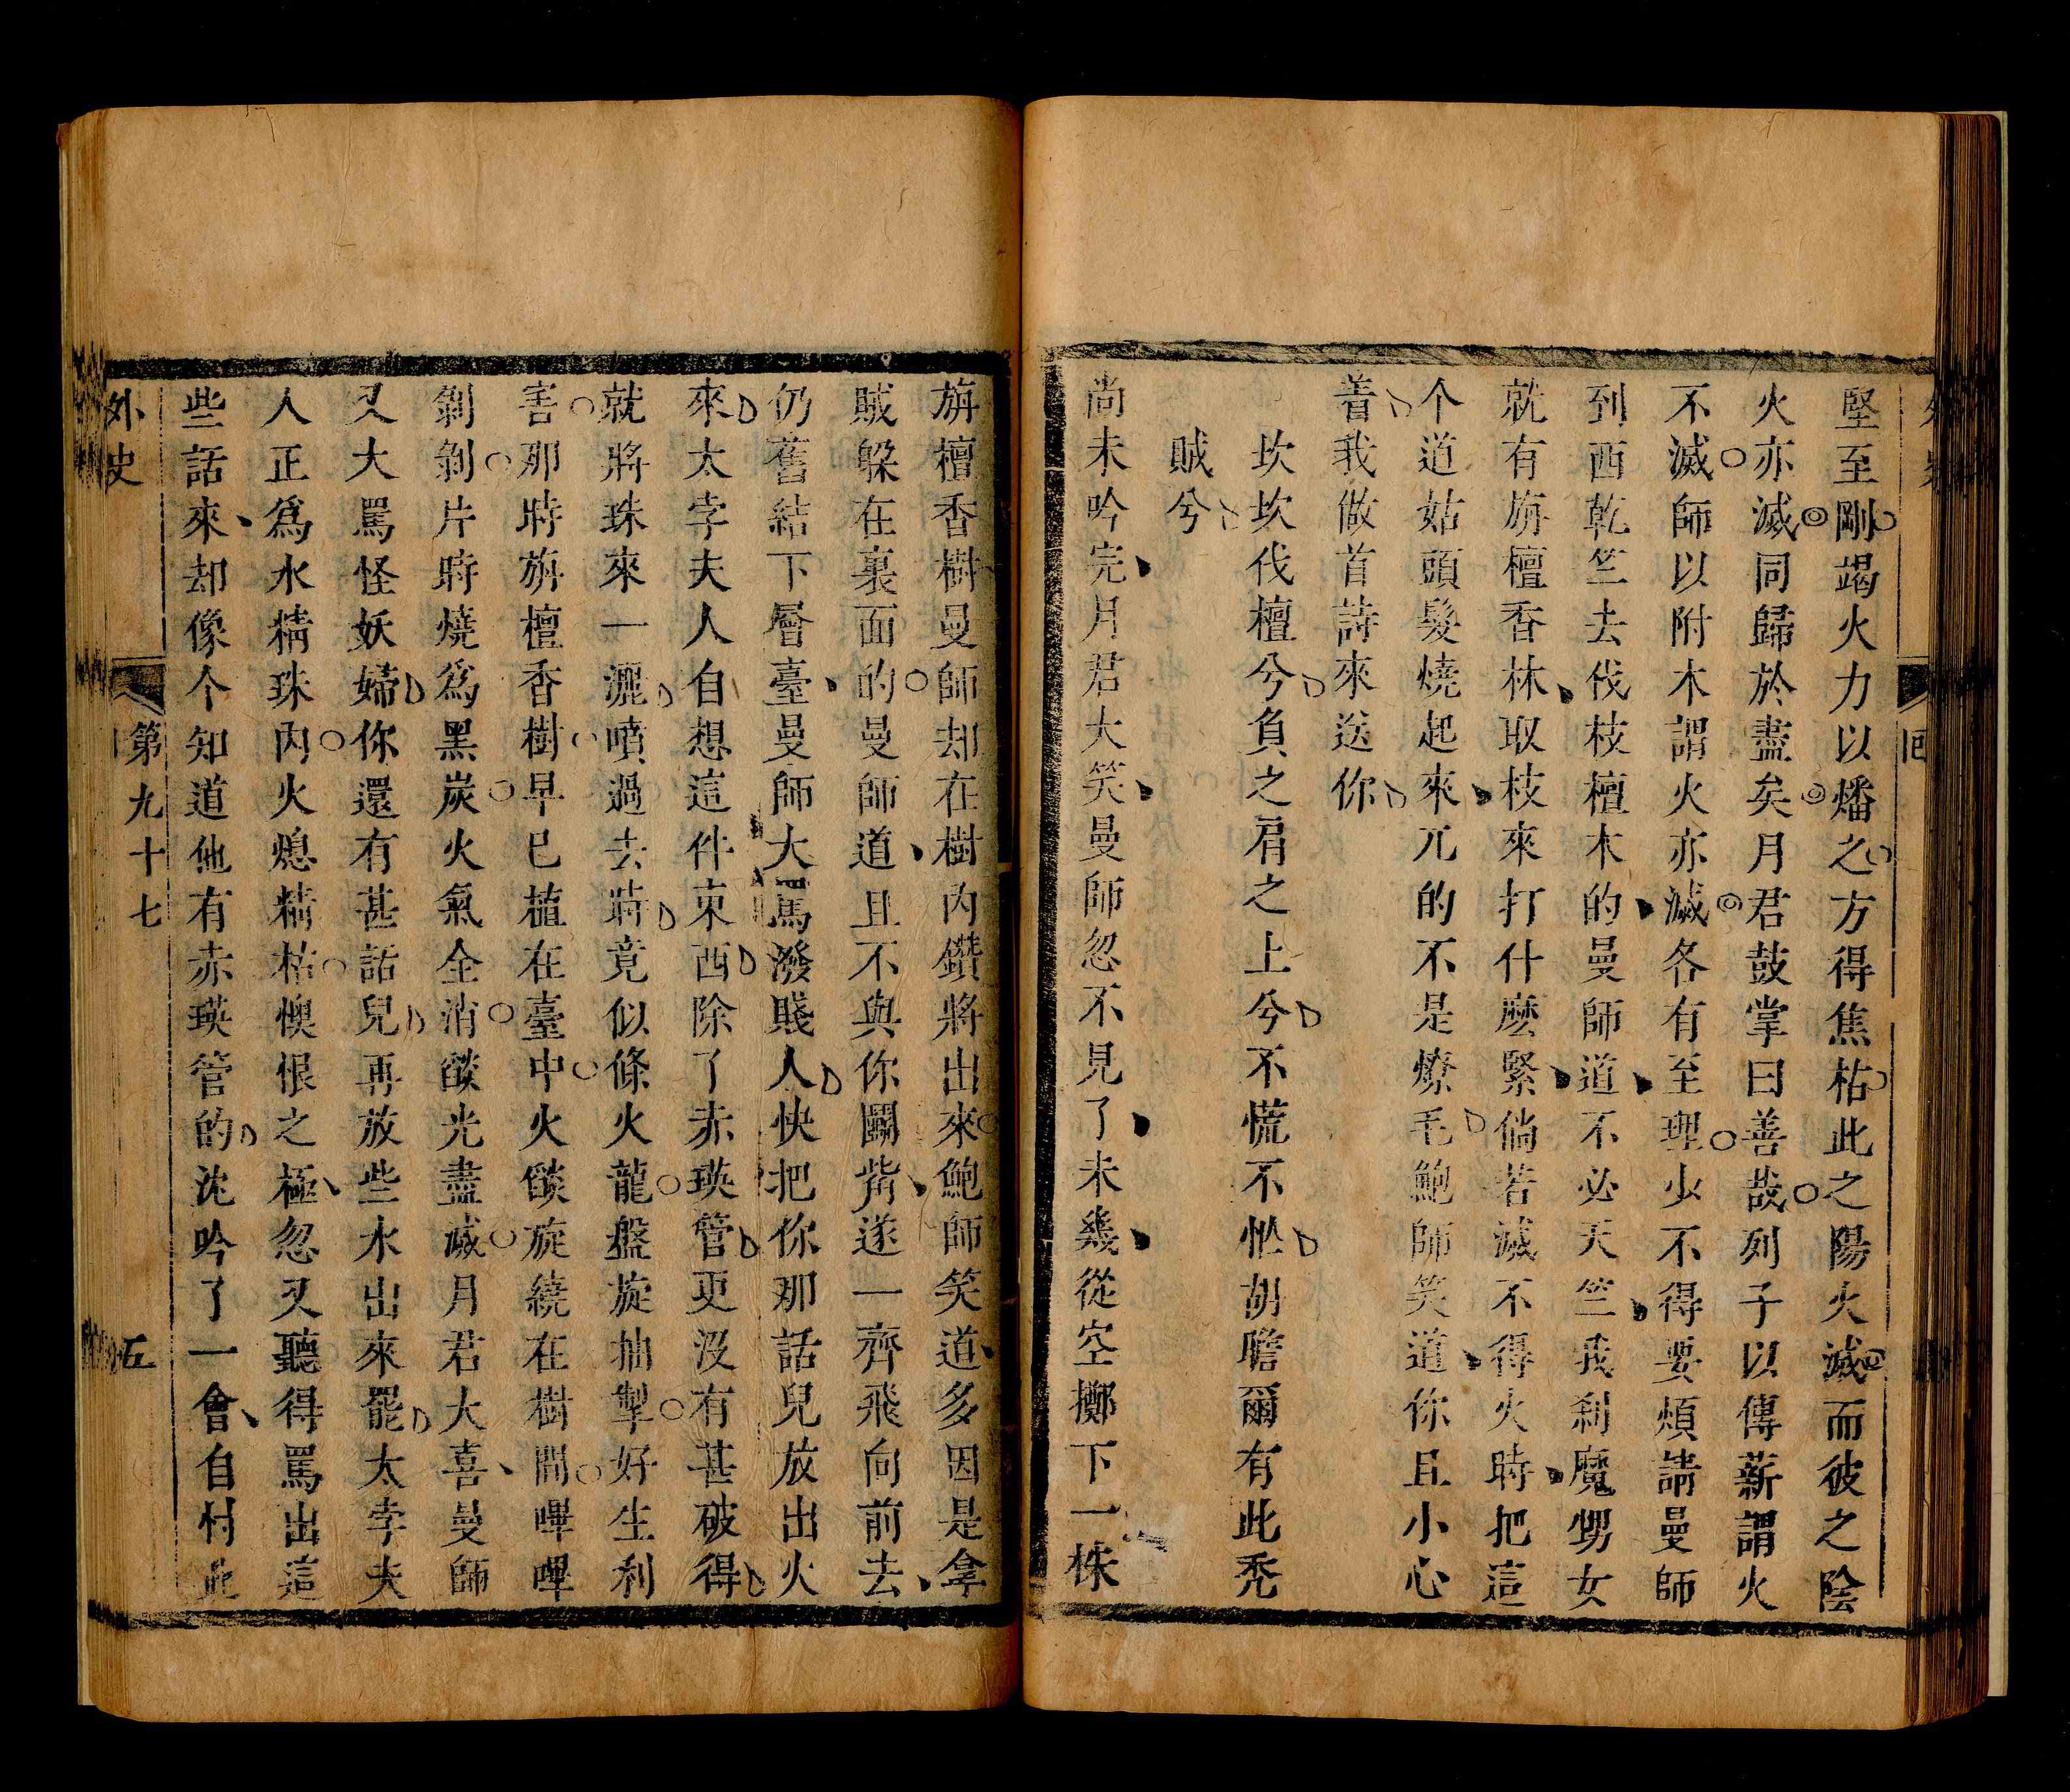 堅至剛竭火力以燔之方得焦枯此之陽火滅而彼之陰
火亦滅同歸於盡矣月君鼓掌曰善哉列子以傳薪謂火
不滅師以附木謂火亦滅各有至理少不得要煩請曼師
到西乾竺去伐枝檀木的曼師道不必天竺我剎魔甥女
就有旃檀香林取枝來打什麽緊倘若滅不得火時把這
个道姑頭髮燒起來兀的不是燎毛鮑師笑道你且小心
着我做首詩來送你
坎坎伐檀兮負之肩之上兮不慌不忙胡瞻爾有此禿
賊兮
尚未吟完月君大笑曼師忽不見了未幾從空擲下一株
旃檀香樹曼師却在樹內鑽將出來鮑師笑道多因是拿
賊躲在裏面的曼師道且不與你鬭觜遂一齊飛向前去
仍舊結下層臺曼師大罵潑賤人快把你那話兒放出火
來太孛夫人自想這件東西除了赤瑛管更沒有甚破得
就將珠來一灑噴過去時竟似條火龍盤旋抽掣好生利
害那時旃檀香樹早已植在臺中火燄旋繞在樹間嗶嗶
剝剝片時燒爲黑炭火氣全消燄光盡滅月君大喜曼師
又大罵怪妖婦你還有甚話兒再放些水出來罷太孛夫
人正爲水精珠內火熄精枯懊恨之極忽又聽得罵出這
些話來却像个知道他有赤瑛管的沈吟了一會自忖此
外史
第九十七
五